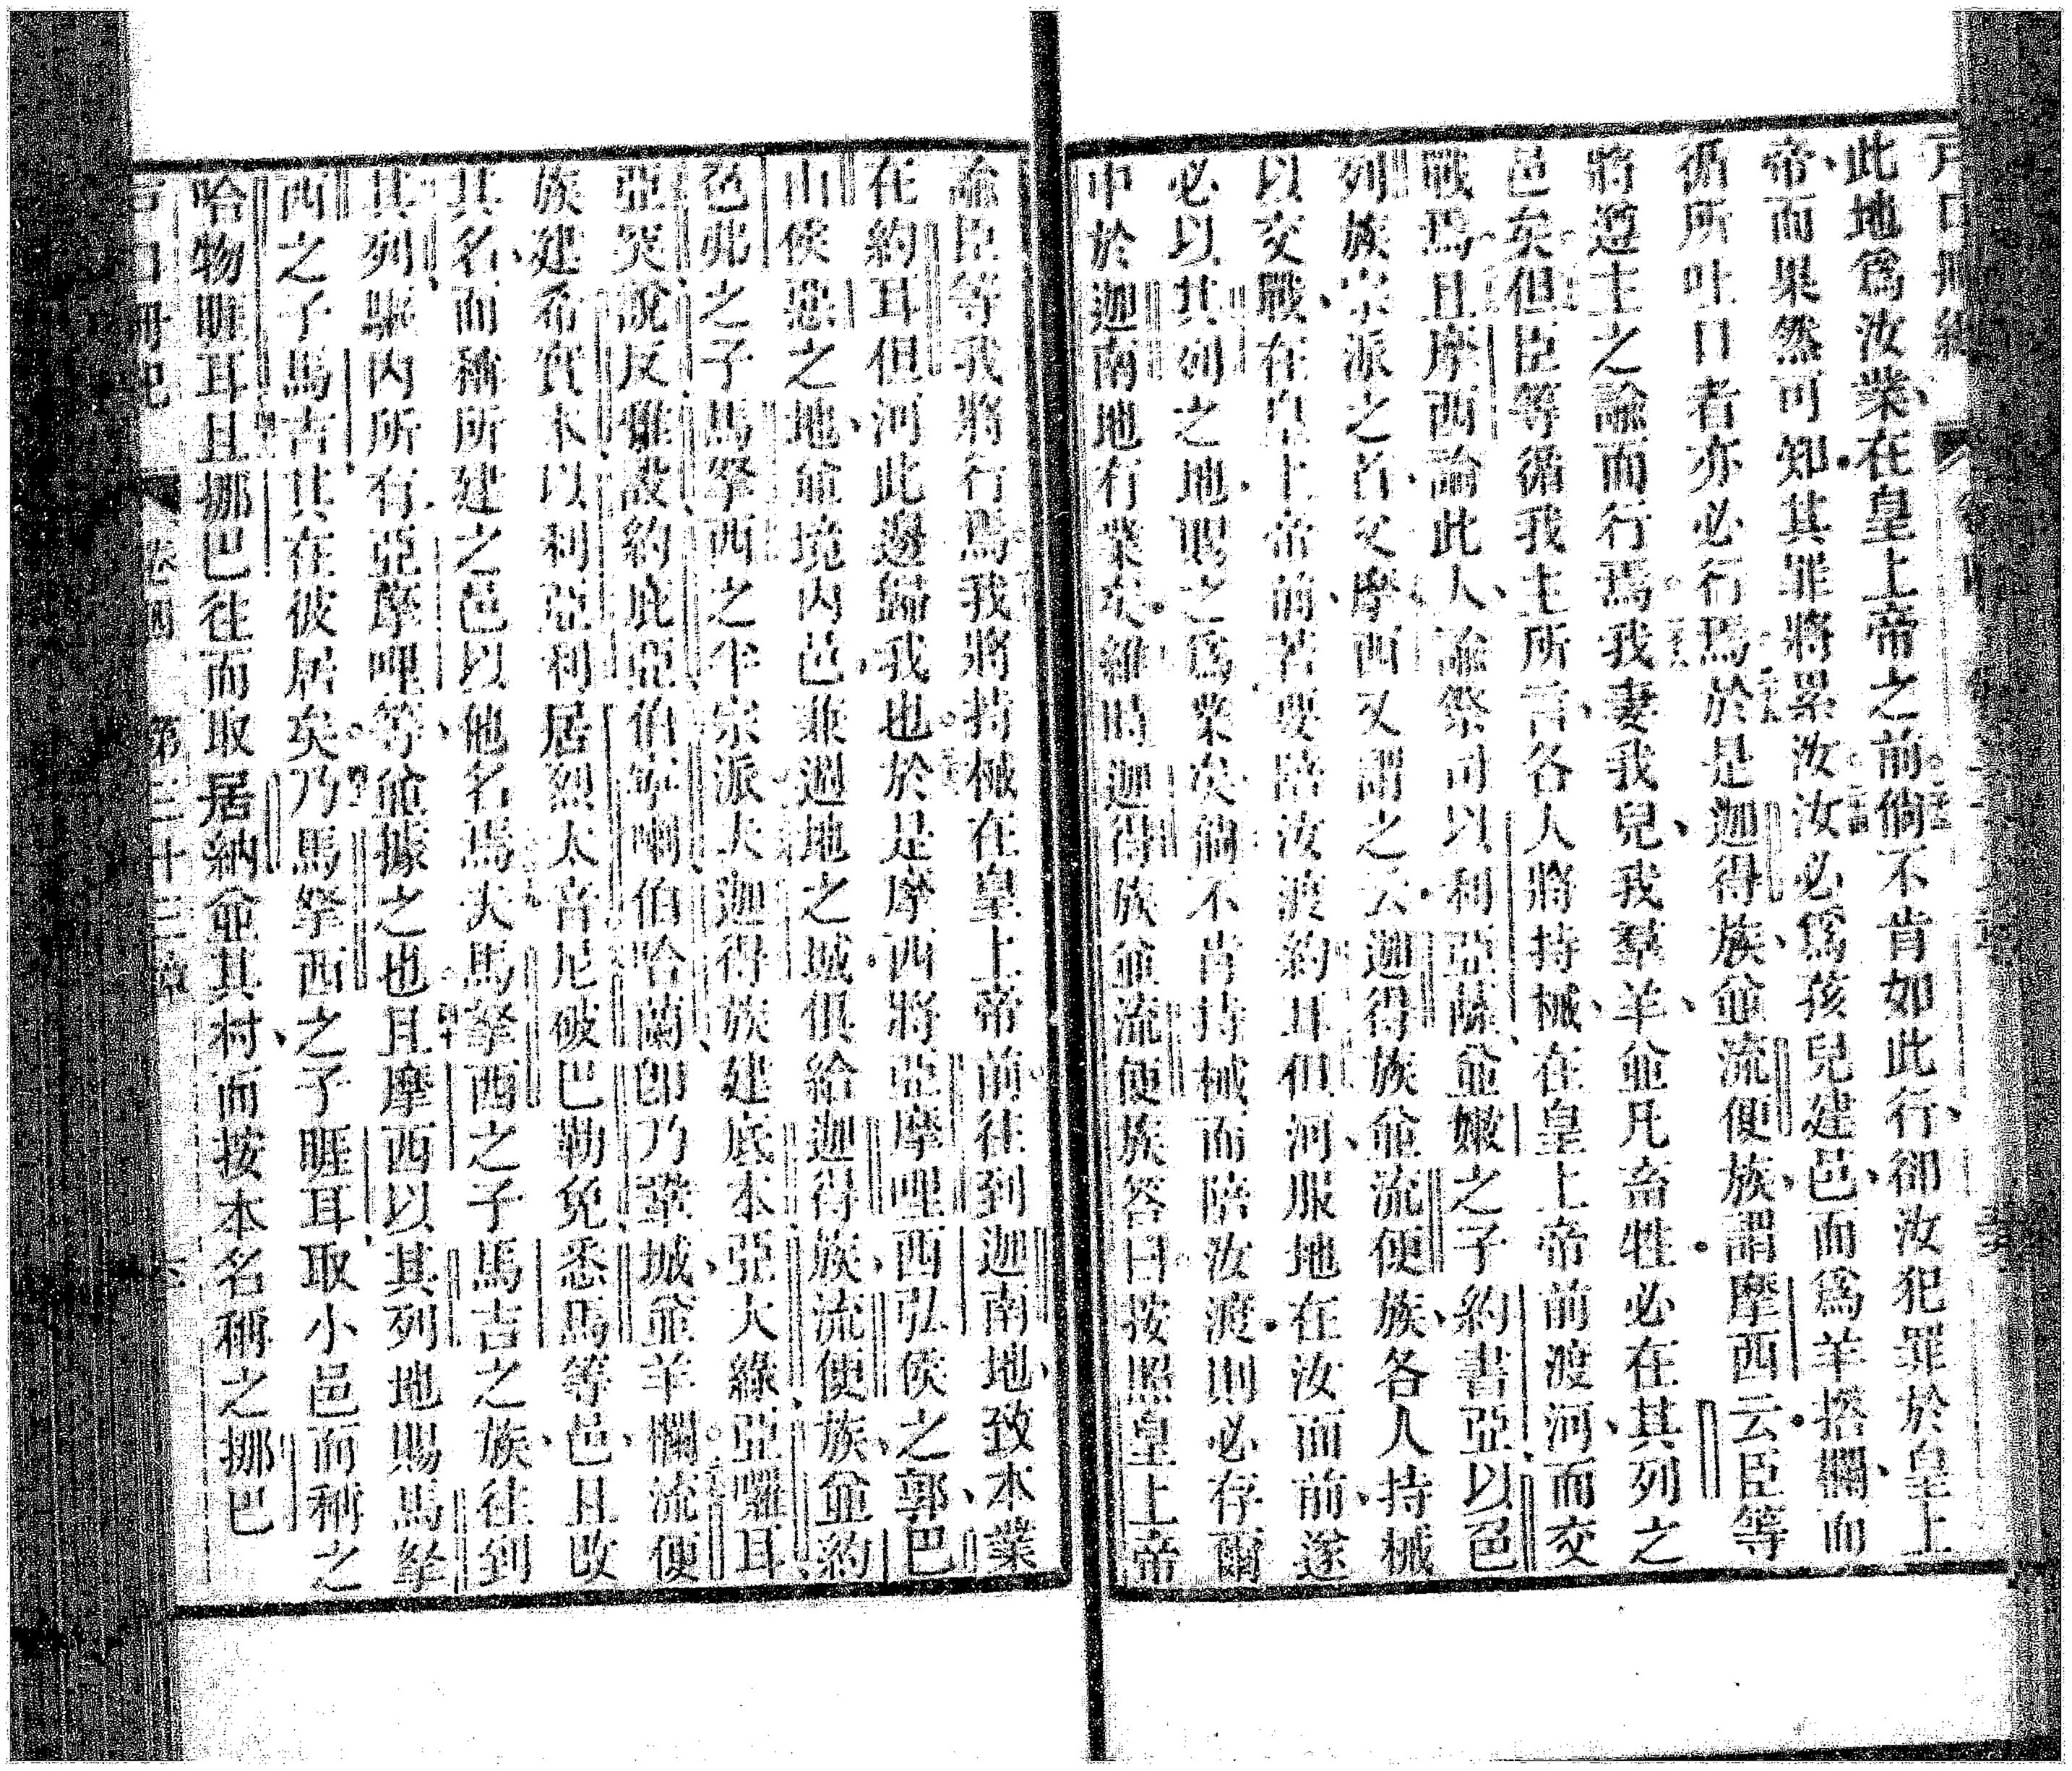 此地爲汝業、在皇上帝之前倘不肯如此行、卻汝犯罪於皇上
帝、而果然可知其罪將累汝汝必爲孩兒建邑、而爲羊搭欄、而
循所吐口者亦必行焉於是迦得族、並流便族、謂摩西云臣等
將遵主之諭而行焉我妻我兒、我羣羊、並凡畜牲必在其列之
邑矣但臣等循我主所言、各人將持械、在皇上帝前渡河、而交
戰焉且摩西論此人、諭祭司以利亞薩、並嫩之子約書亞以色
列族宗派之者、父摩西又謂之云迦得族並流便族、各人持械
以交戰、在皇上帝前、若要陪汝渡約耳但河、服地在汝面前、遂
必以其列之地賜之爲業矣倘不肯持械而陪汝渡則必存爾
中於迦南地有業矣維時迦得族並流便族答曰按照皇上帝
諭臣等我將行焉我將持械在皇上帝前往到迦南地、致本業
在約耳但河此邊歸我也於是摩西將亞摩哩西弘侯之郭、巴
山侯惡之地、並境內邑、兼週地之城俱給迦得族、流便族、並約
色弗之子馬拏西之半宗派大迦得族建底本亞大綠亞囉耳
亞哭說反雅設約庇亞伯寧喇伯哈蘭即乃鞏城、並羊欄流便
族建希實本以利亞利居烈太音尼破巴勒免悉馬等邑、且改
其名、而稱所建之邑以他名焉夫馬拏西之子馬吉之族、往到
其列、驅內所有亞摩哩等、並據之也且摩西以其列地賜馬拏
西之子馬吉其在彼居矣乃馬拏西之子睚耳取小邑而稱之
哈物睚耳且挪巴往而取居納並其村、而按本名稱之挪巴
卷四 第三十二章